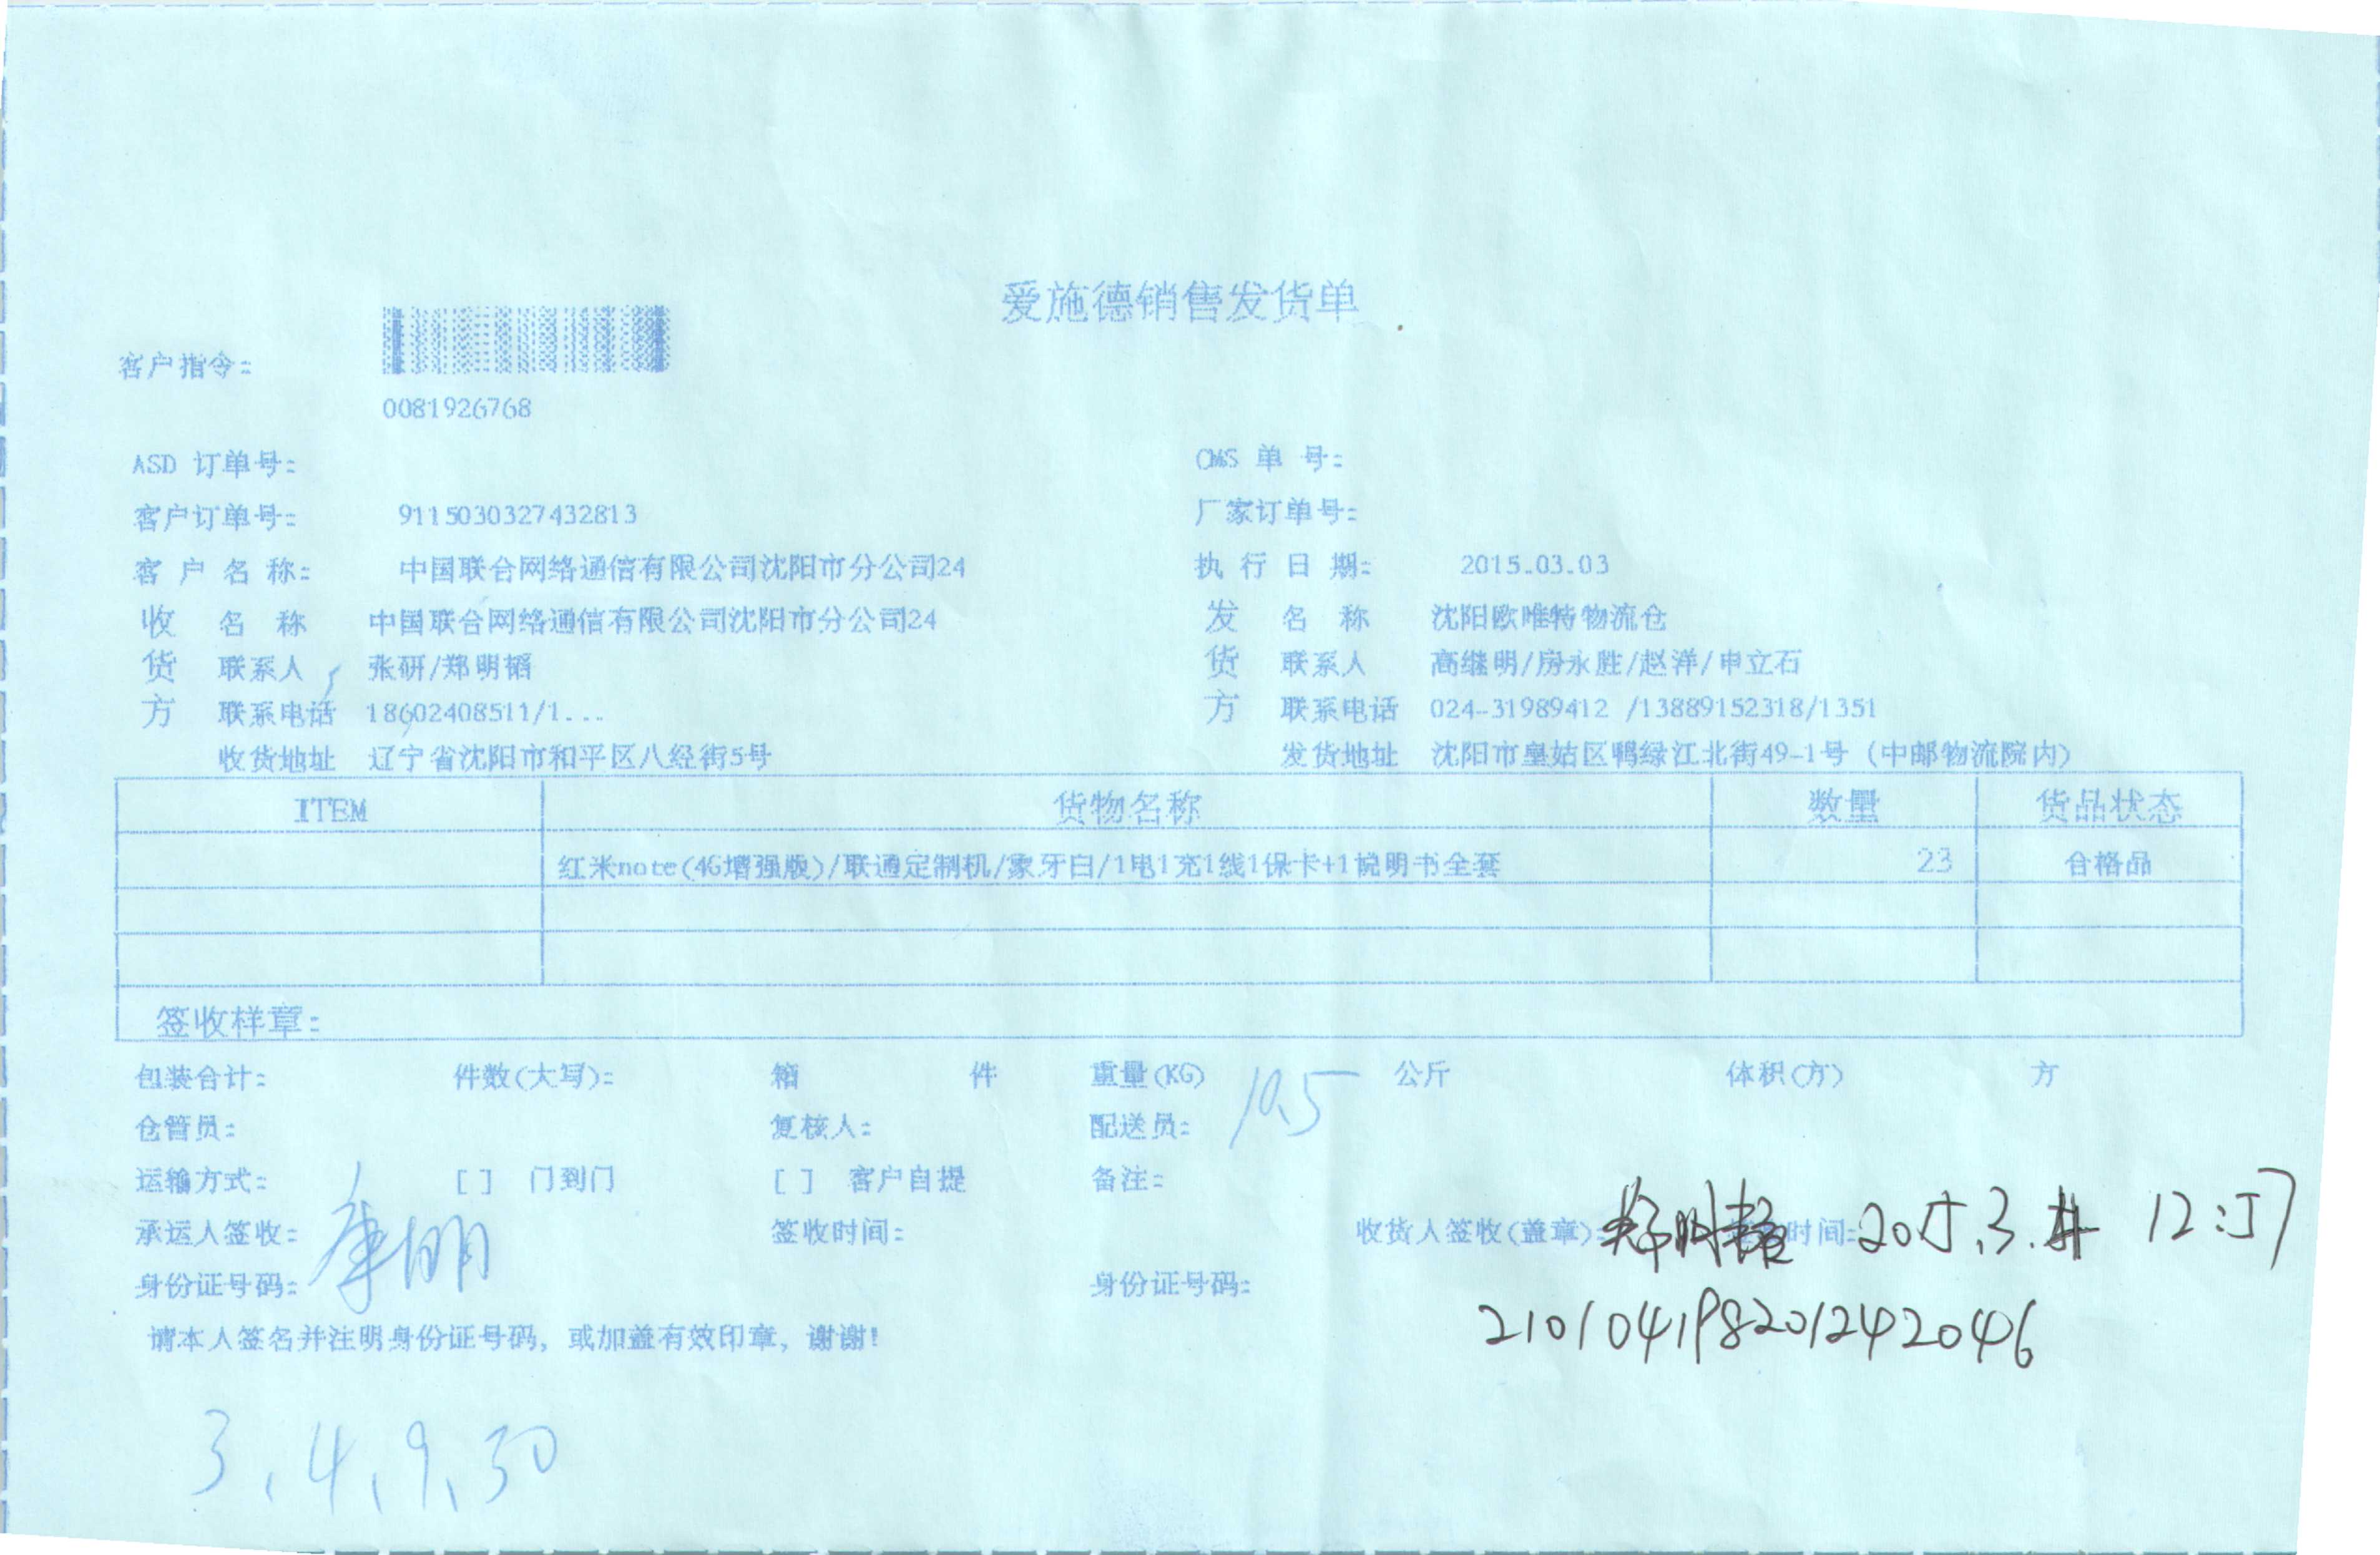 爱施德销售发货单
客户指令:
0081926768
ASD 订单号: CMS 单 号:
客户订单号: 9115030327432813 厂家订单号:
客 户 名 称: 中国联合网络通信有限公司沈阳市分公司24 执 行 日 期: 2015.03.03
收 名 称 中国联合网络通信有限公司沈阳市分公司24 发 名 称 沈阳欧唯特物流仓
货 联系人 张研/郑明韬 货 联系人 高继明/房永胜/赵洋/申立石
方 联系电话 18602408511/1... 方 联系电话 024-31989412 /13889152318/1351
收货地址 辽宁省沈阳市和平区八经街5号 发货地址 沈阳市皇姑区鸭绿江北街49-1号 (中邮物流院内)
ITEM 货物名称 数量 货品状态
红米note(4G增强版)/联通定制机/象牙白/1电1充1线1保卡+1说明书全套 23 合格品
签收样章:
包装合计: 件数(大写): 箱 件 重量(KG) 10.5 公斤 体积(方) 方
仓管员: 复核人: 配送员:
运输方式: [ ] 门到门 [ ] 客户自提 备注:
承运人签收: 签收时间: 收货人签收(盖章): 时间: 2015.3. 12:57
身份证号码: 身份证号码: 210104198201242046
请本人签名并注明身份证号码, 或加盖有效印章, 谢谢!
3、4、9、30